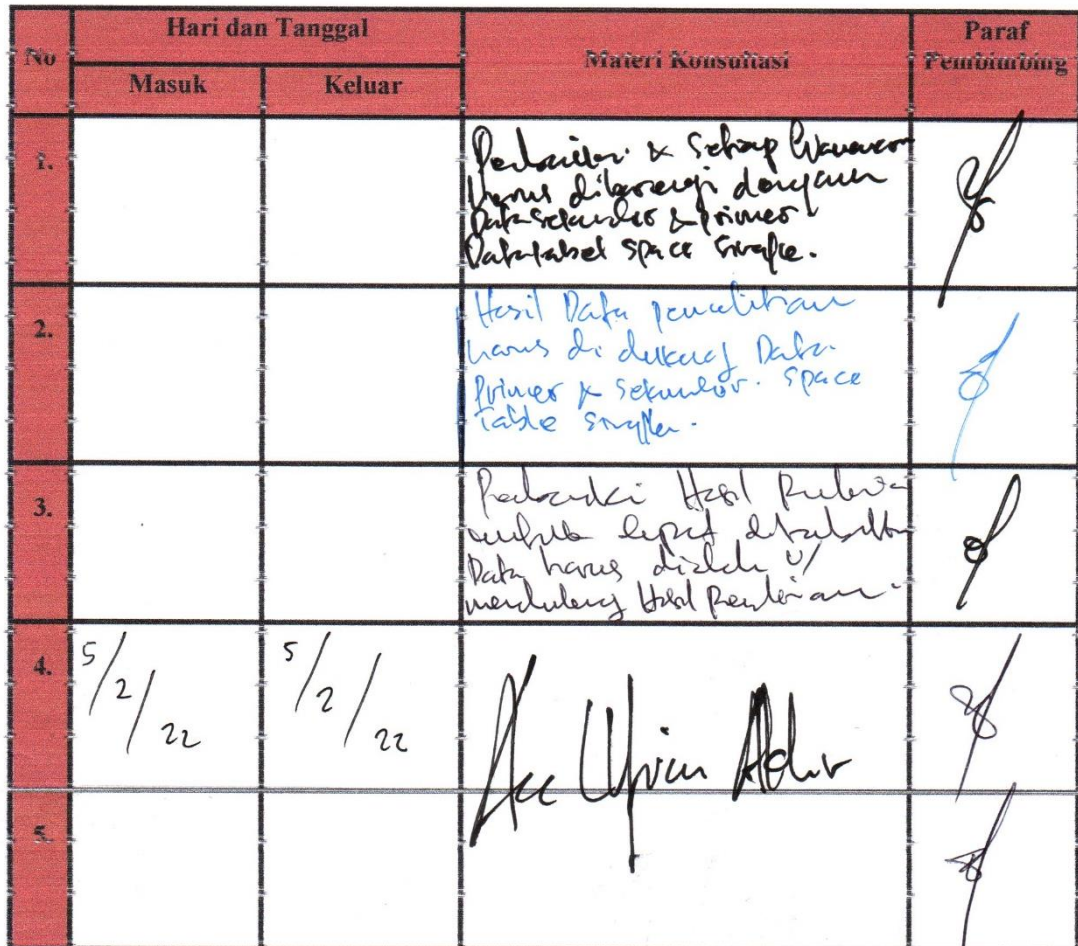 No
Hari dan Tanggal
Materi Konsultasi
Paraf
Pembimbing
Masuk
Keluar
1.
& Setiap
Harus dibarengi dengan
Data sekunder & primer
Data tabel space single.
2.
Hasil Data penelitian
harus di dukung Data
Primer & Sekunder. Space
Table single.
3.
Perbaiki Hasil
Data harus diolah u/
mendukung Hasil Penelitian.
4.
5/2/22
5/2/22
Acc Ujian Akhir
5.